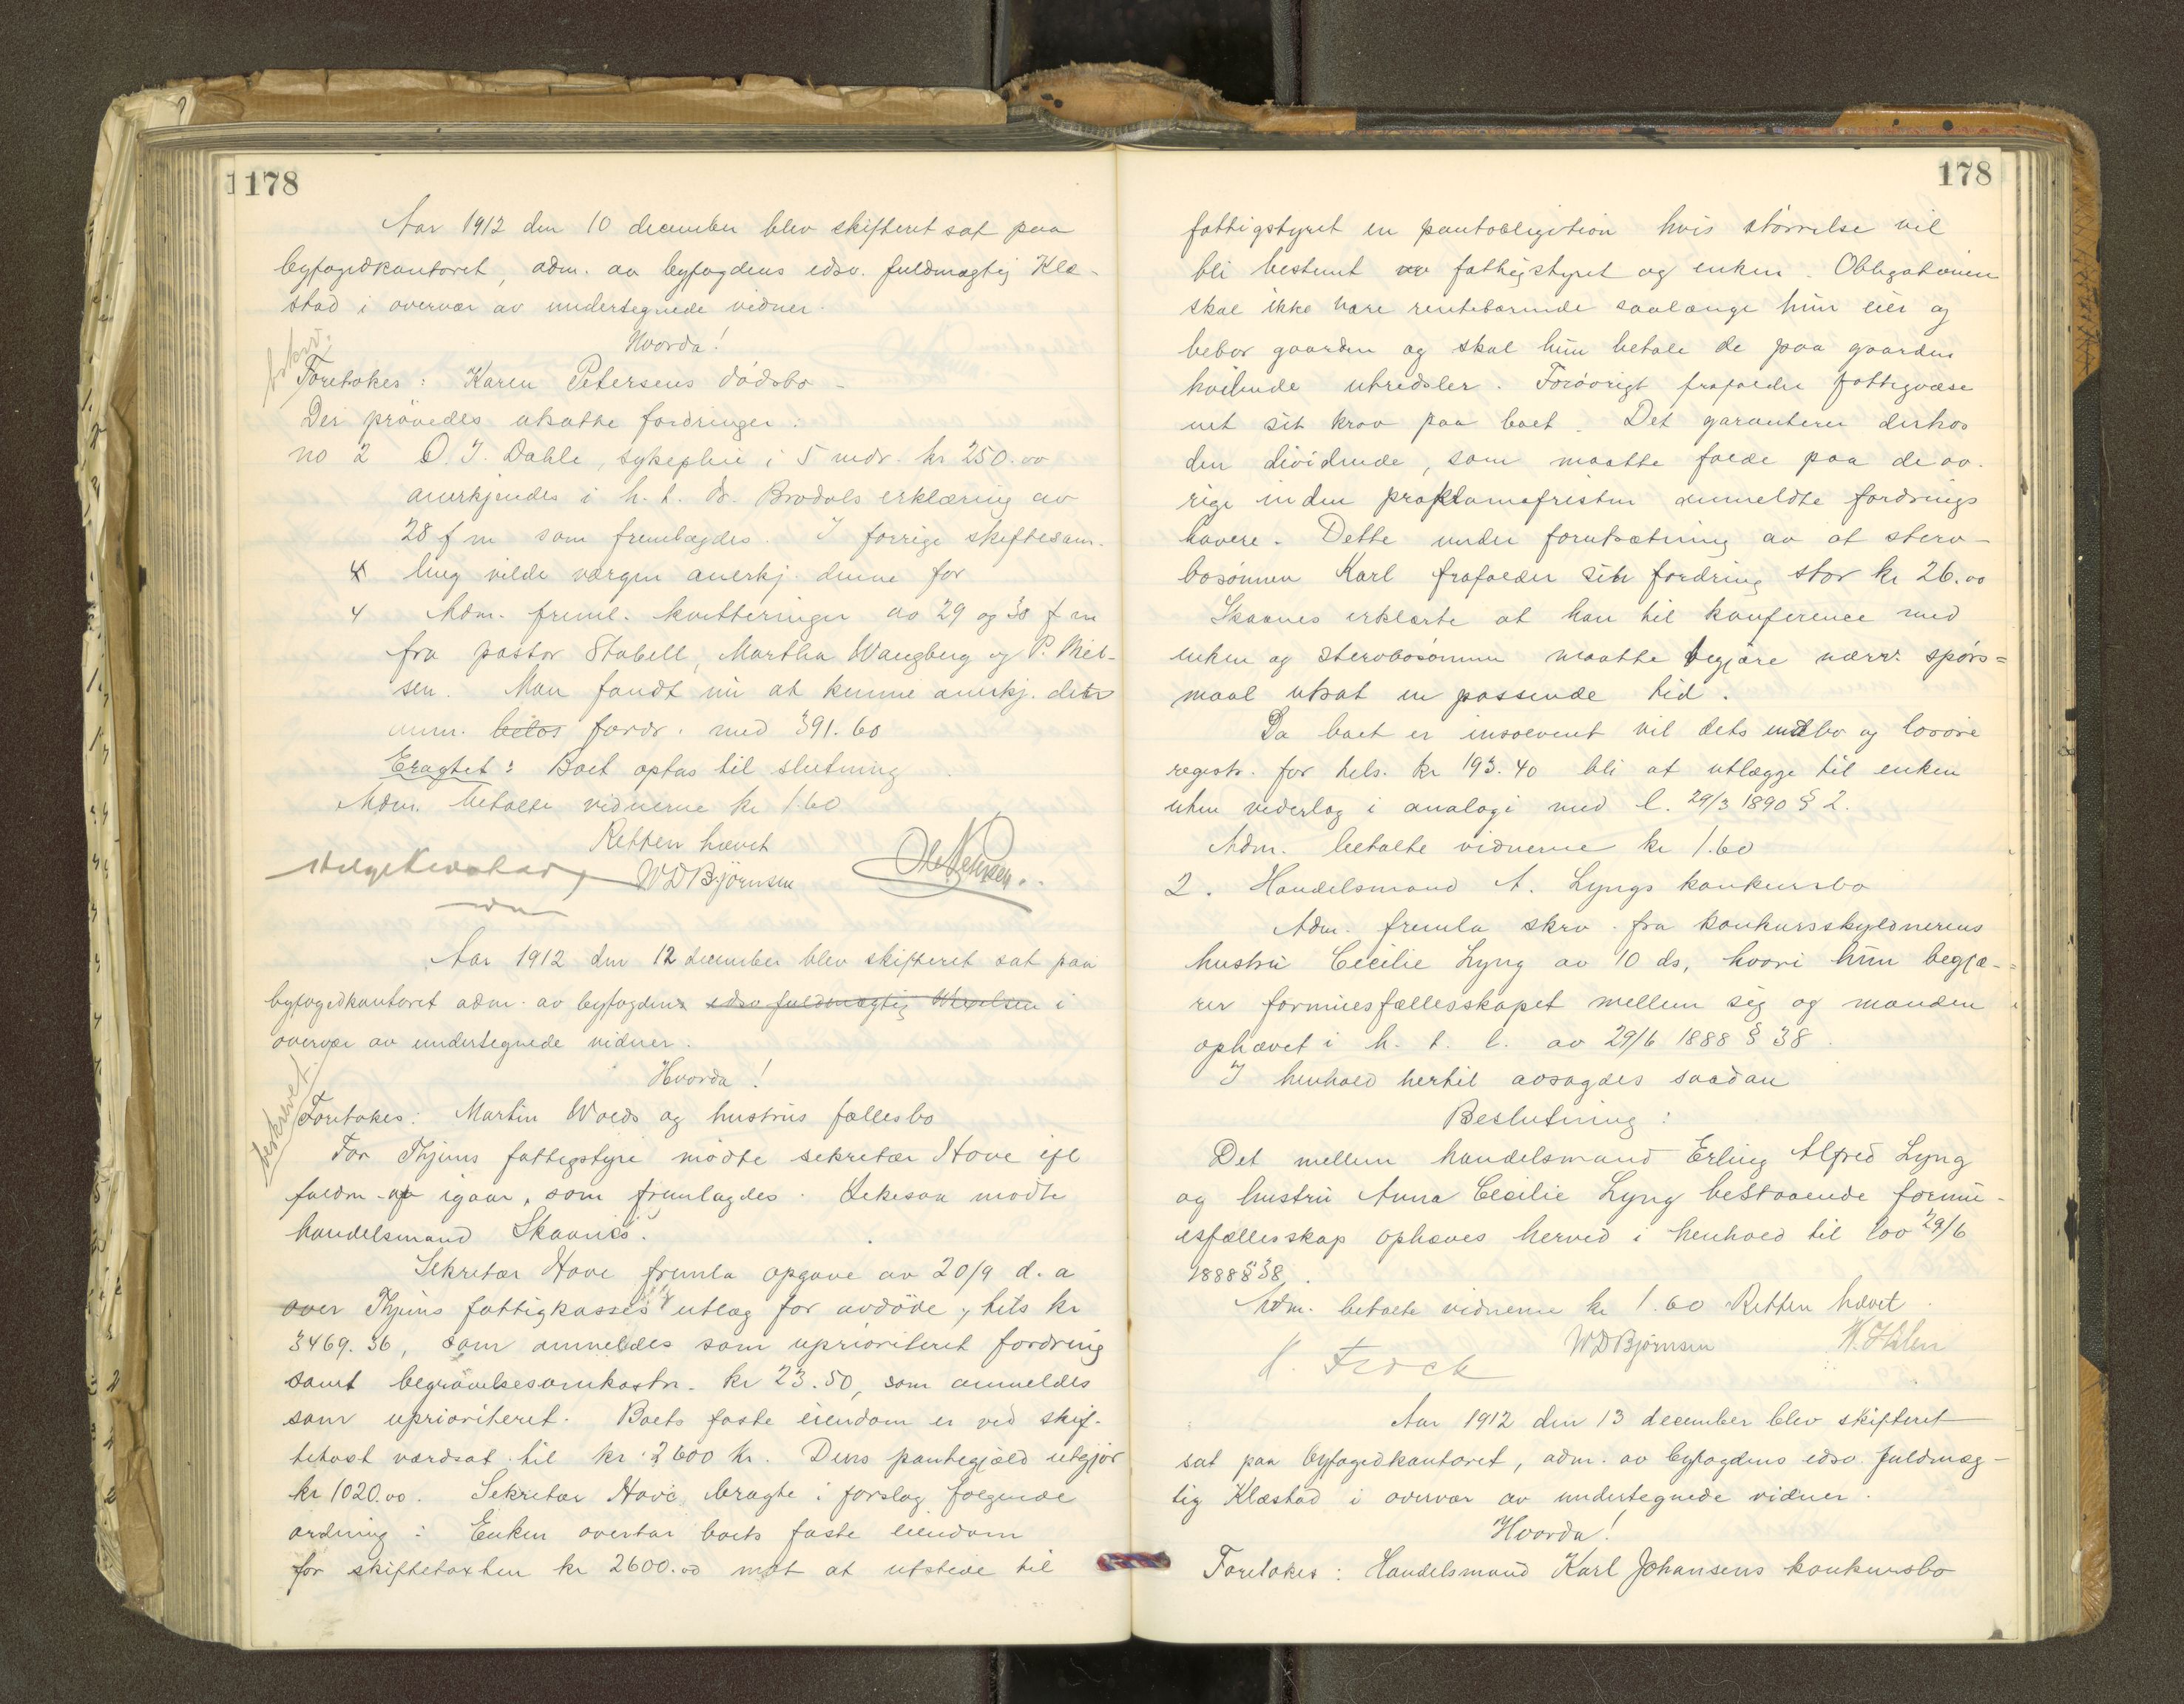 178
Aar 1912 den 10 december blev skifteret sat paa
byfogedkontoret, adm. av byfogdens edsv. fuldmægtig Klæ-
stad i overvær av undersegnede vidner.
Hvorda!
Foretokes: Karen Petersens dödsbo -
Der prövedes utsatte fordringer:
no 2 O. J. Dahle, sykepleie i 5 mdr. kr 250.00
anerkjendes i h. t. dr. Brodals erklæring av
28 f m som fremlægdes. I forrige skiftesam-
ling vilde værgen anerkj. denne for
4 Adm. freml. kvitteringer av 29 og 30 f m
fra pastor Stabell, Martha Wangberg og P. Niel-
sen. Man fandt nu at kunne anerkj. dette
anm. beløs fordr. med 391.60
Eragtet: Boet optas til slutning
Adm. betalte vidnerne kr 1.60
Retten hævet
WDBjörnsen
Aar 1912 den 12 december blev skifteret sat paa
byfogedkontoret adm. av byfogden edsv fuldmægtig i
overvær av undertegnede vidner.
Hvorda!
beskrevet
Foretokes: Martin Wolds og hustrus fællesbo
For Thjems fattigstyre mödte sekretær Hove ifl
fuldm. av igaar, som fremlagdes. Likesaa mödte
handelsmand Skaanes.
Sekretær Hove fremla opgave av 20/9 d. a
over Thjems fattigkasses utlæg for avdöde, tils kr
3469.36, som anmeldes som uprioriteret fordring
samt begravelsesomkostn. kr 23.50, som anmeldes
som uprioriteret. Boets faste eiendom er ved skif-
tetaxt værdsat til kr 2600 kr. Dens pantegjæld utgjör
kr 1020.00. Sekretær Hove bragte i forslag følgende
ordning: Enken overtar boets faste eiendom
for skiftetaxten kr 2600.00 mot at utstede til
178
fattigstyret en pantobligation hvis störrelse vil
bli bestemt av fattigstyret og enken. Obligationen
skal ikke være rentebærende saalænge hun eier og
bebor gaarden og skal hun betale de paa gaarden
hvilende utredsler. Forövrigt frafalder fattigvæse
net sit krav paa boet. Det garanterer derhos
den dividende, som maatte falde paa de öv-
rige inden proklamafristen anmeldte fordrings
havere. Dette under forutsætning av at sterv-
bosönnen Karl frafalder sin fordring stor kr 26.00
Skaanes erklærte at han til konference med
enken og stervbosönnen maatte begjære nærv. spörs=
maal utsat en passende tid.
Da boet er insolvent vil dets indbo og lösöre
registr. for tils. kr 193.40 bli at utlægge til enken
uten vederlag i analogi med l. 29/3 1890 § 2.
Adm. betalte vidnerne kr 1.60
2. Handelsmand A. Lyngs konkursbo
Adm. fremla skrv. fra konkursskyldnerens
hustru Cecilie Lyng av 10 ds, hvori hun begjæ-
rer formuesfællesskapet mellem sig og manden
ophævet i h. t. l. av 29/6 1888 § 38.
I henhold hertil avsagdes saadan
Beslutning:
Det mellem handelsmand Erling Alfred Lyng
og hustru Anna Cecilie Lyng bestaaende formu-
esfællesskap ophæves herved i henhold til lov 29/6
1888 § 38.
Adm. betalte vidnerne kr 1.60 Retten hævet.
WDBjörnsen
Aar 1912 den 13 december blev skifteret
sat paa byfogedkontoret, adm. av byfogdens edsv. fuldmæg-
tig Klæstad i overvær av undertegnede vidner.
Hvorda!
Foretokes: Handelsmand Karl Johansens konkursbo